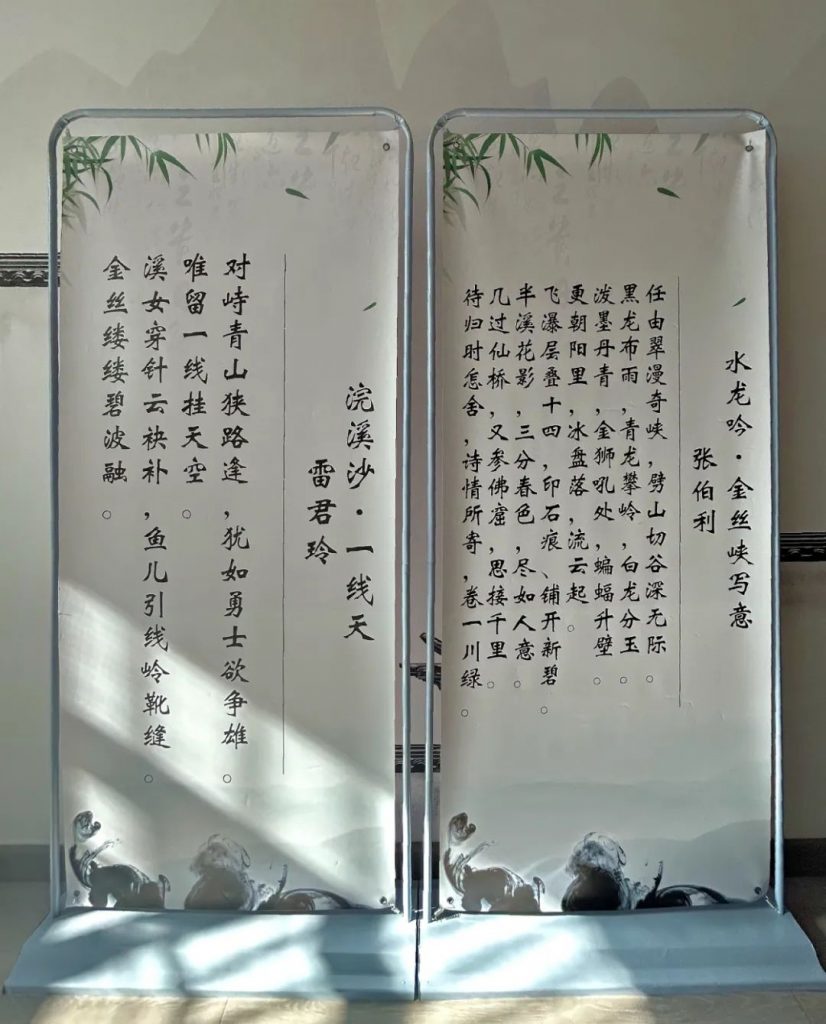 水龙吟·金丝峡写意
张伯利
任由翠漫奇峡,劈山切谷深无际。
黑龙布雨,青龙攀岭,白龙分玉
泼墨丹青,金狮吼处,蝙蝠升壁。
更朝阳里,冰盘落,流云起。
飞瀑层叠十四,印石痕、铺开新碧。
半溪花影,三分春色,尽如人意。
几过仙桥,又参佛窟,思接千里。
待归时怎舍,诗情所寄,卷一川绿。
浣溪沙·一线天
雷君玲
对峙青山狭路逢,犹如勇士欲争雄。
唯留一线挂天空。
溪女穿针云袂补,鱼儿引线岭靴缝。
金丝缕缕碧波融。